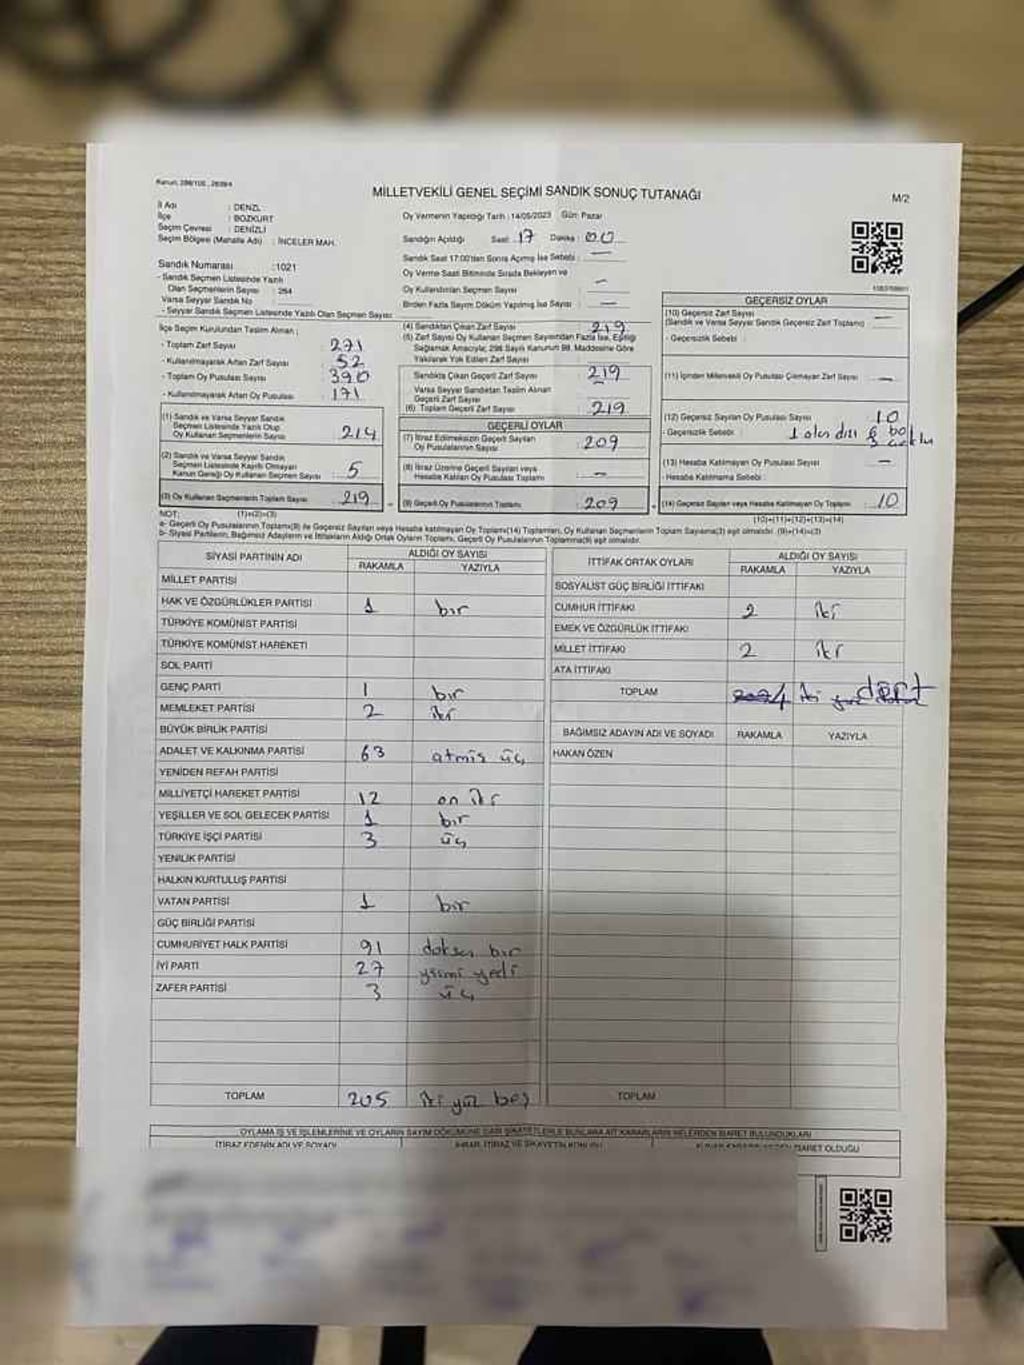 Kanun: 298/105, 2839/4
MİLLETVEKİLİ GENEL SEÇİMİ SANDIK SONUÇ TUTANAĞI
M/2
İl Adı : DENİZLİ
İlçe : BOZKURT
Seçim Çevresi : DENİZLİ
Seçim Bölgesi (Mahalle Adı) : İNCELER MAH.
Sandık Numarası :1021
- Sandık Seçmen Listesinde Yazılı
Olan Seçmenlerin Sayısı : 264
Varsa Seyyar Sandık No :
- Seyyar Sandık Seçmen Listesinde Yazılı Olan Seçmen Sayısı:
Oy Vermenin Yapıldığı Tarih : 14/05/2023 Gün: Pazar
Sandığın Açıldığı Saat : 17 Dakika : 00
Sandık Saat 17:00'dan Sonra Açılmış İse Sebebi : —
Oy Verme Saati Bitiminde Sırada Bekleyen ve
Oy Kullandırılan Seçmen Sayısı : —
Birden Fazla Sayım Döküm Yapılmış İse Sayısı : —
İlçe Seçim Kurulundan Teslim Alınan ;
- Toplam Zarf Sayısı : 271
- Kullanılmayarak Artan Zarf Sayısı : 52
- Toplam Oy Pusulası Sayısı : 390
- Kullanılmayarak Artan Oy Pusulası : 171
(1) Sandık ve Varsa Seyyar Sandık
Seçmen Listesinde Yazılı Olup
Oy Kullanan Seçmenlerin Sayısı : 214
(2) Sandık ve Varsa Seyyar Sandık
Seçmen Listesinde Kayıtlı Olmayan
Kanun Gereği Oy Kullanan Seçmen Sayısı : 5
(3) Oy Kullanan Seçmenlerin Toplam Sayısı : 219
(4) Sandıktan Çıkan Zarf Sayısı : 219
(5) Zarf Sayısı Oy Kullanan Seçmen Sayısından Fazla İse, Eşitliği
Sağlamak Amacıyla; 298 Sayılı Kanunun 98. Maddesine Göre
Yakılarak Yok Edilen Zarf Sayısı :
Sandıkta Çıkan Geçerli Zarf Sayısı : 219
Varsa Seyyar Sandıktan Teslim Alınan
Geçerli Zarf Sayısı :
(6) Toplam Geçerli Zarf Sayısı : 219
GEÇERLİ OYLAR
(7) İtiraz Edilmeksizin Geçerli Sayılan
Oy Pusulalarının Sayısı : 209
(8) İtiraz Üzerine Geçerli Sayılan veya
Hesaba Katılan Oy Pusulaları Toplamı : —
(9) Geçerli Oy Pusulalarının Toplamı : 209
GEÇERSİZ OYLAR
(10) Geçersiz Zarf Sayısı
(Sandık ve Varsa Seyyar Sandık Geçersiz Zarf Toplamı) : —
- Geçersizlik Sebebi :
(11) İçinden Milletvekili Oy Pusulası Çıkmayan Zarf Sayısı : —
(12) Geçersiz Sayılan Oy Pusulası Sayısı : 10
- Geçersizlik Sebebi :
(13) Hesaba Katılmayan Oy Pusulası Sayısı : —
- Hesaba Katılmama Sebebi :
(14) Geçersiz Sayılan veya Hesaba Katılmayan Oy Toplamı : 10
NOT: (1)+(2)=(3)
(10)+(11)+(12)+(13)=(14)
a- Geçerli Oy Pusulalarının Toplamı(9) ile Geçersiz Sayılan veya Hesaba katılmayan Oy Toplamı(14) Toplamları, Oy Kullanan Seçmenlerin Toplam Sayısına(3) eşit olmalıdır. (9)+(14)=(3)
b- Siyasi Partilerin, Bağımsız Adayların ve İttifakların Aldığı Ortak Oyların Toplamı, Geçerli Oy Pusulalarının Toplamına(9) eşit olmalıdır.
SİYASİ PARTİNİN ADI ALDIĞI OY SAYISI
RAKAMLA YAZIYLA
MİLLET PARTİSİ
HAK VE ÖZGÜRLÜKLER PARTİSİ 1 bir
TÜRKİYE KOMÜNİST PARTİSİ
TÜRKİYE KOMÜNİST HAREKETİ
SOL PARTİ
GENÇ PARTİ 1 bir
MEMLEKET PARTİSİ 2 iki
BÜYÜK BİRLİK PARTİSİ
ADALET VE KALKINMA PARTİSİ 63 atmış üç
YENİDEN REFAH PARTİSİ
MİLLİYETÇİ HAREKET PARTİSİ 12 on iki
YEŞİLLER VE SOL GELECEK PARTİSİ 1 bir
TÜRKİYE İŞÇİ PARTİSİ 3 üç
YENİLİK PARTİSİ
HALKIN KURTULUŞ PARTİSİ
VATAN PARTİSİ 1 bir
GÜÇ BİRLİĞİ PARTİSİ
CUMHURİYET HALK PARTİSİ 91 doksan bir
İYİ PARTİ 27 yirmi yedi
ZAFER PARTİSİ 3 üç
TOPLAM 205 iki yüz beş
İTTİFAK ORTAK OYLARI ALDIĞI OY SAYISI
RAKAMLA YAZIYLA
SOSYALİST GÜÇ BİRLİĞİ İTTİFAKI
CUMHUR İTTİFAKI 2 iki
EMEK VE ÖZGÜRLÜK İTTİFAKI
MİLLET İTTİFAKI 2 iki
ATA İTTİFAKI
TOPLAM 4 dört
BAĞIMSIZ ADAYIN ADI VE SOYADI RAKAMLA YAZIYLA
HAKAN ÖZEN
TOPLAM
OYLAMA İŞ VE İŞLEMLERİNE VE OYLARIN SAYIM DÖKÜMÜNE DAİR ŞİKAYETLERLE BUNLARA AİT KARARLARIN NELERDEN İBARET BULUNDUKLARI
İTİRAZ EDENİN ADI VE SOYADI